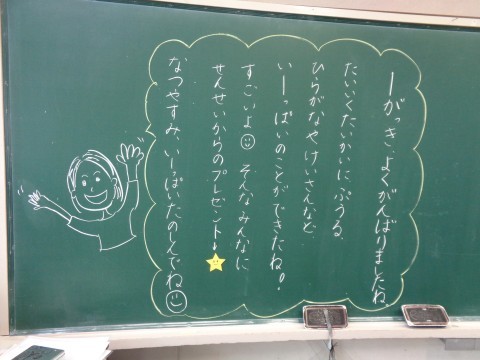 一がっき、よくがんばりましたね。
たいいくたいかいに ぷうる、
ひらがなや けいさんなど
いーっぱいのことができたね!
すごいよ☺ そんなみんなに
せんせいからのプレゼント↓
なつやすみ、いーっぱいたのしんでね☺